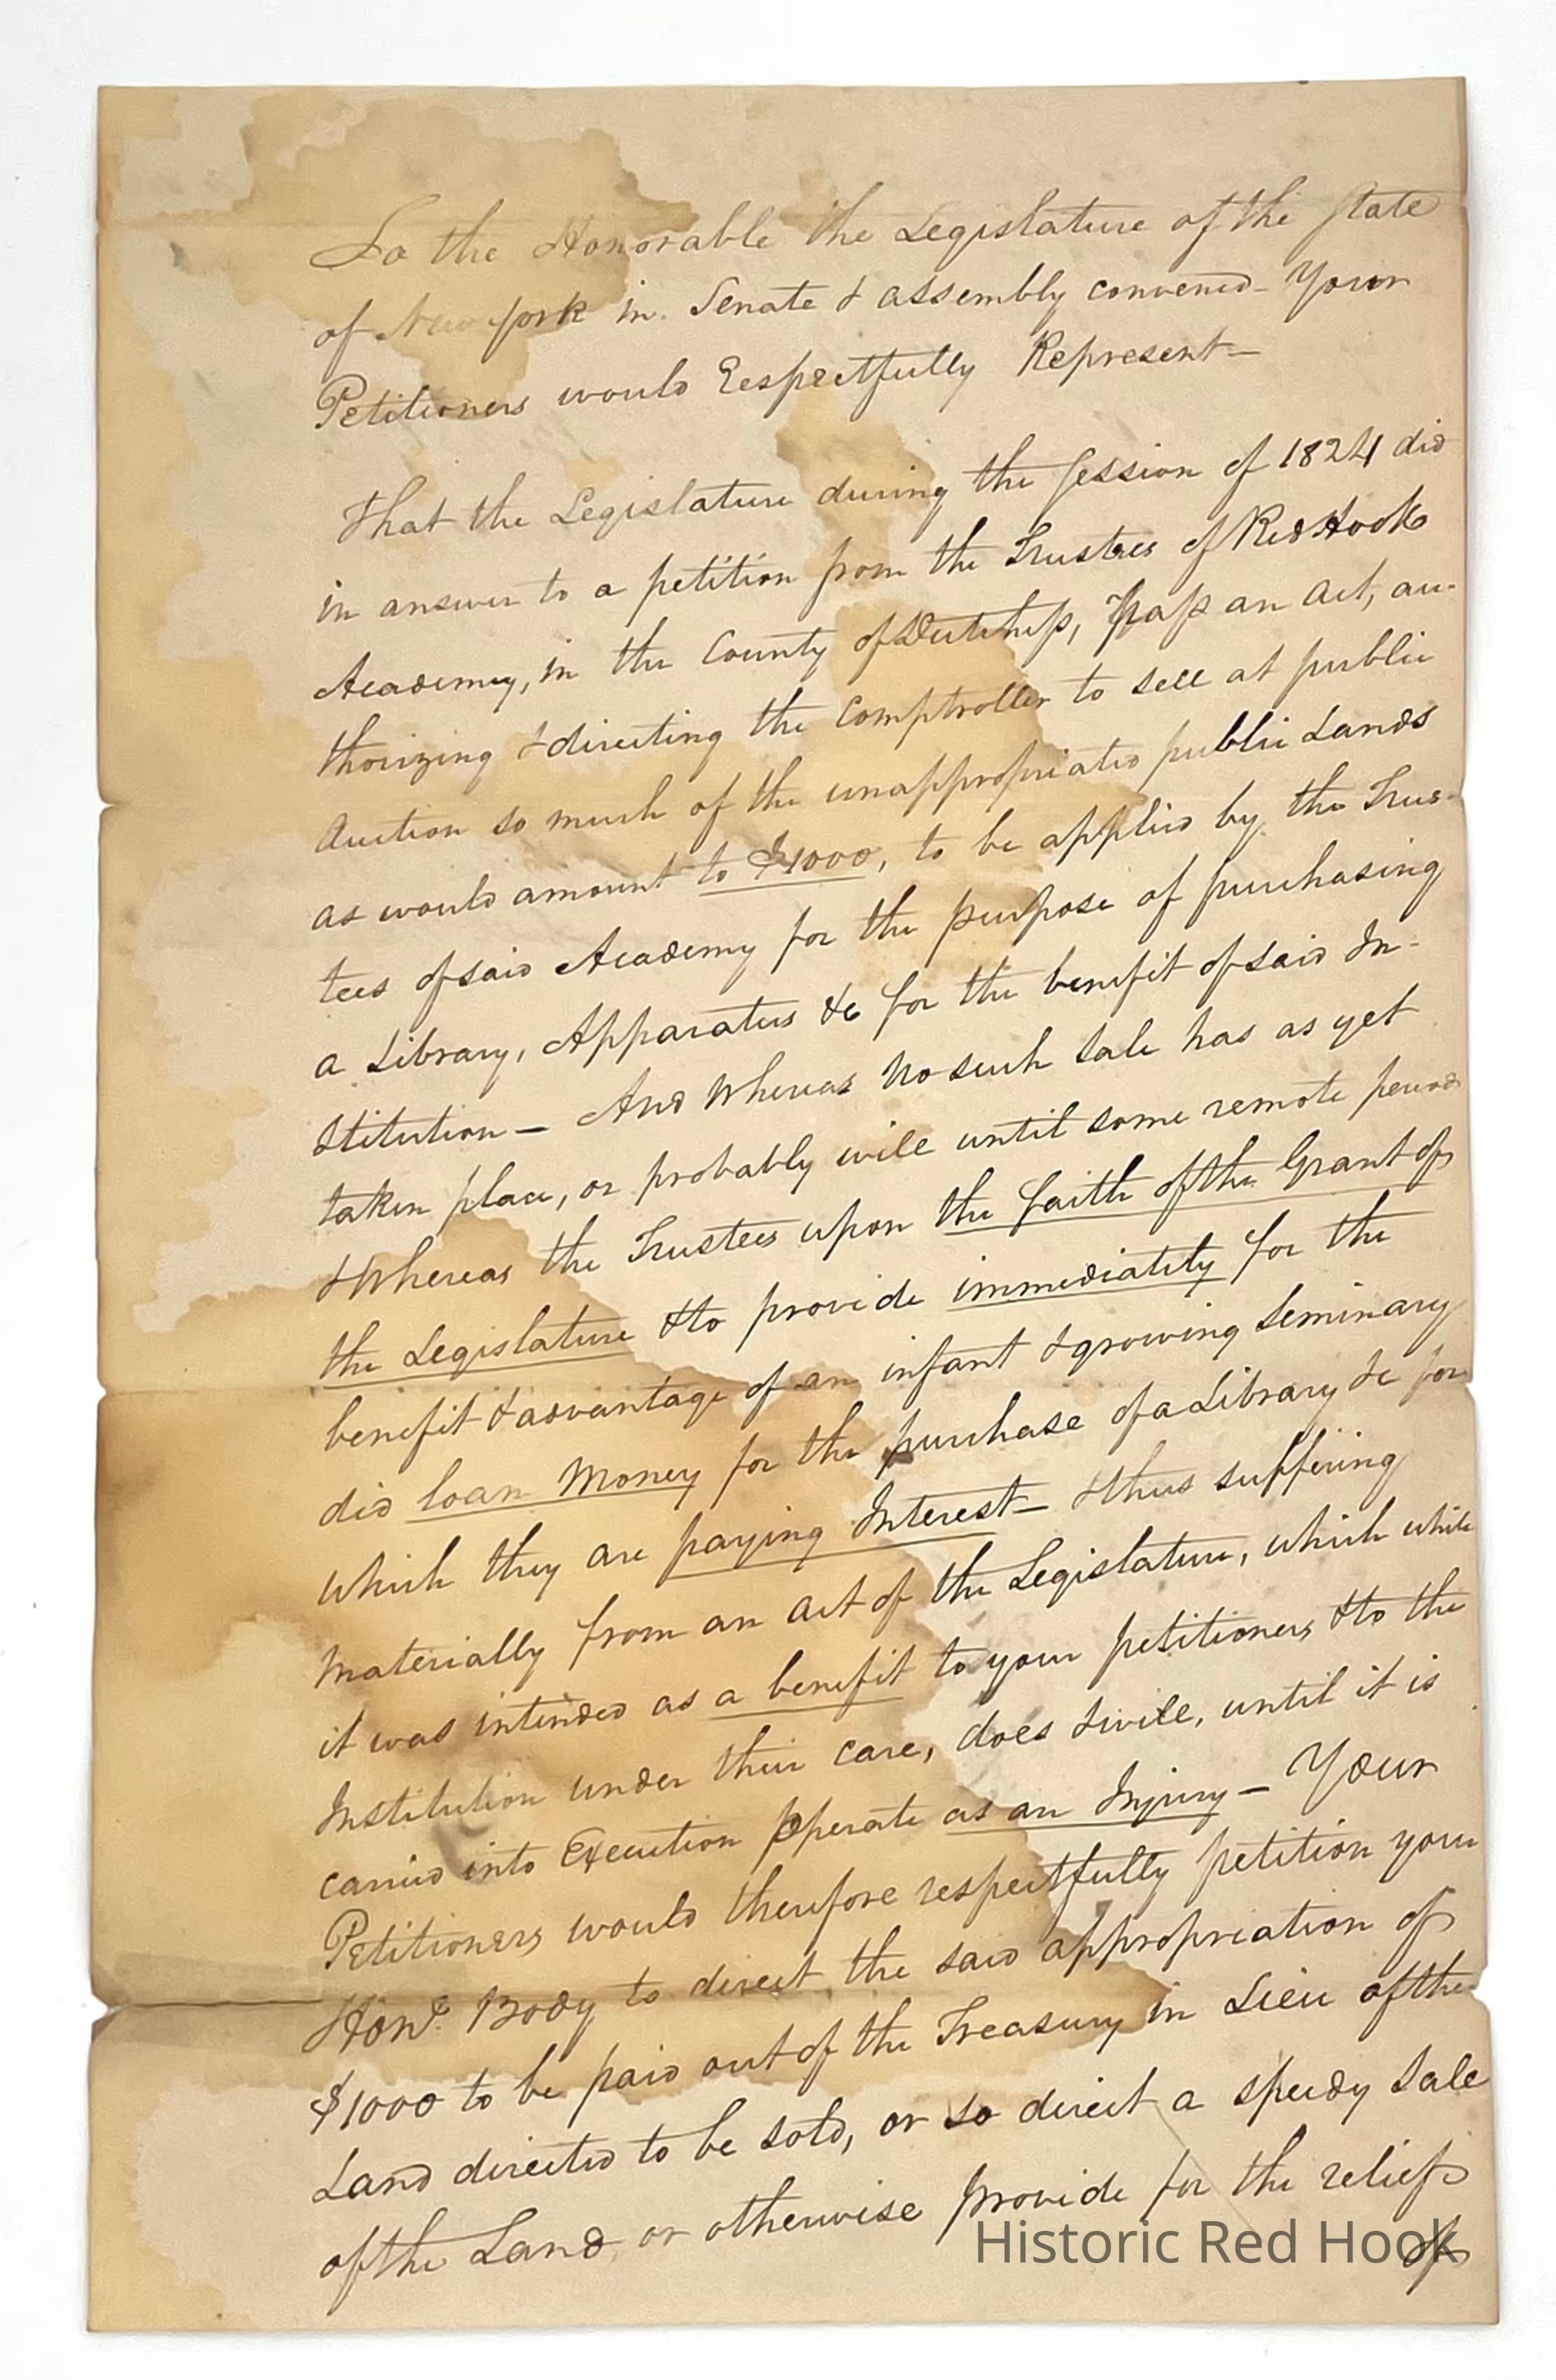 To the Honorable the Legislature of the State
of New york in Senate & assembly convened - Your
Petitioners would Respectfully Represent -
That the Legislature during the session of 1824 did
in answer to a petition from the Trustees of Red Hook
Academy, in the County of Dutchess, Pass an Act, au-
thorizing & directing the Comptroller to sell at public
Auction so much of the unappropriated public Lands
as would amount to $1000, to be applied by the Trus-
tees of said Academy for the purpose of purchasing
a Library, Apparatus &c for the benefit of said In-
stitution - And Whereas No such sale has as yet
taken place, or probably will until some remote period
& Whereas the Trustees upon the faith of the Grant of
the Legislature & to provide immediately for the
benefit & advantage of an infant & growing Seminary
did loan Money for the purchase of a Library &c for
which they are paying Interest - & thus suffering
Materially from an act of the Legislature, which while
it was intended as a benefit to your petitioners & to the
Institution under their care, does & will, until it is
carried into Execution operate as an Injury - Your
Petitioners would therefore respectfully petition your
Honl. Body to direct the said appropriation of
$1000 to be paid out of the Treasury in Lieu of the
Land directed to be sold, or so direct a speedy Sale
of the Land or otherwise provide for the relief
of
Historic Red Hook